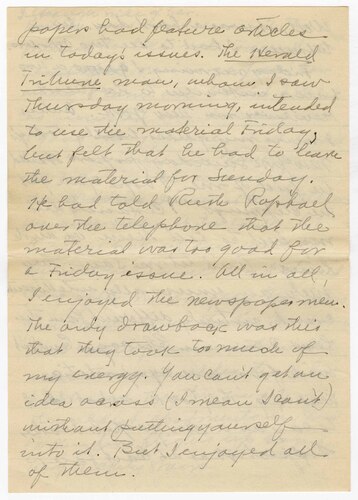 papers had feature articles
in today's issues. The Herald
Tribune man, whom I saw
Thursday morning, intended
to use the material Friday,
but felt that he had to leave
the material for Sunday.
He had told Ruth Raphael
over the telephone that the
material was too good for
a Friday issue. All in all,
I enjoyed the newspaper men.
The only drawback was this
that they took too much of
my energy. You can't get an
idea across (I mean I can't)
without putting yourself
into it. But I enjoyed all
of them.